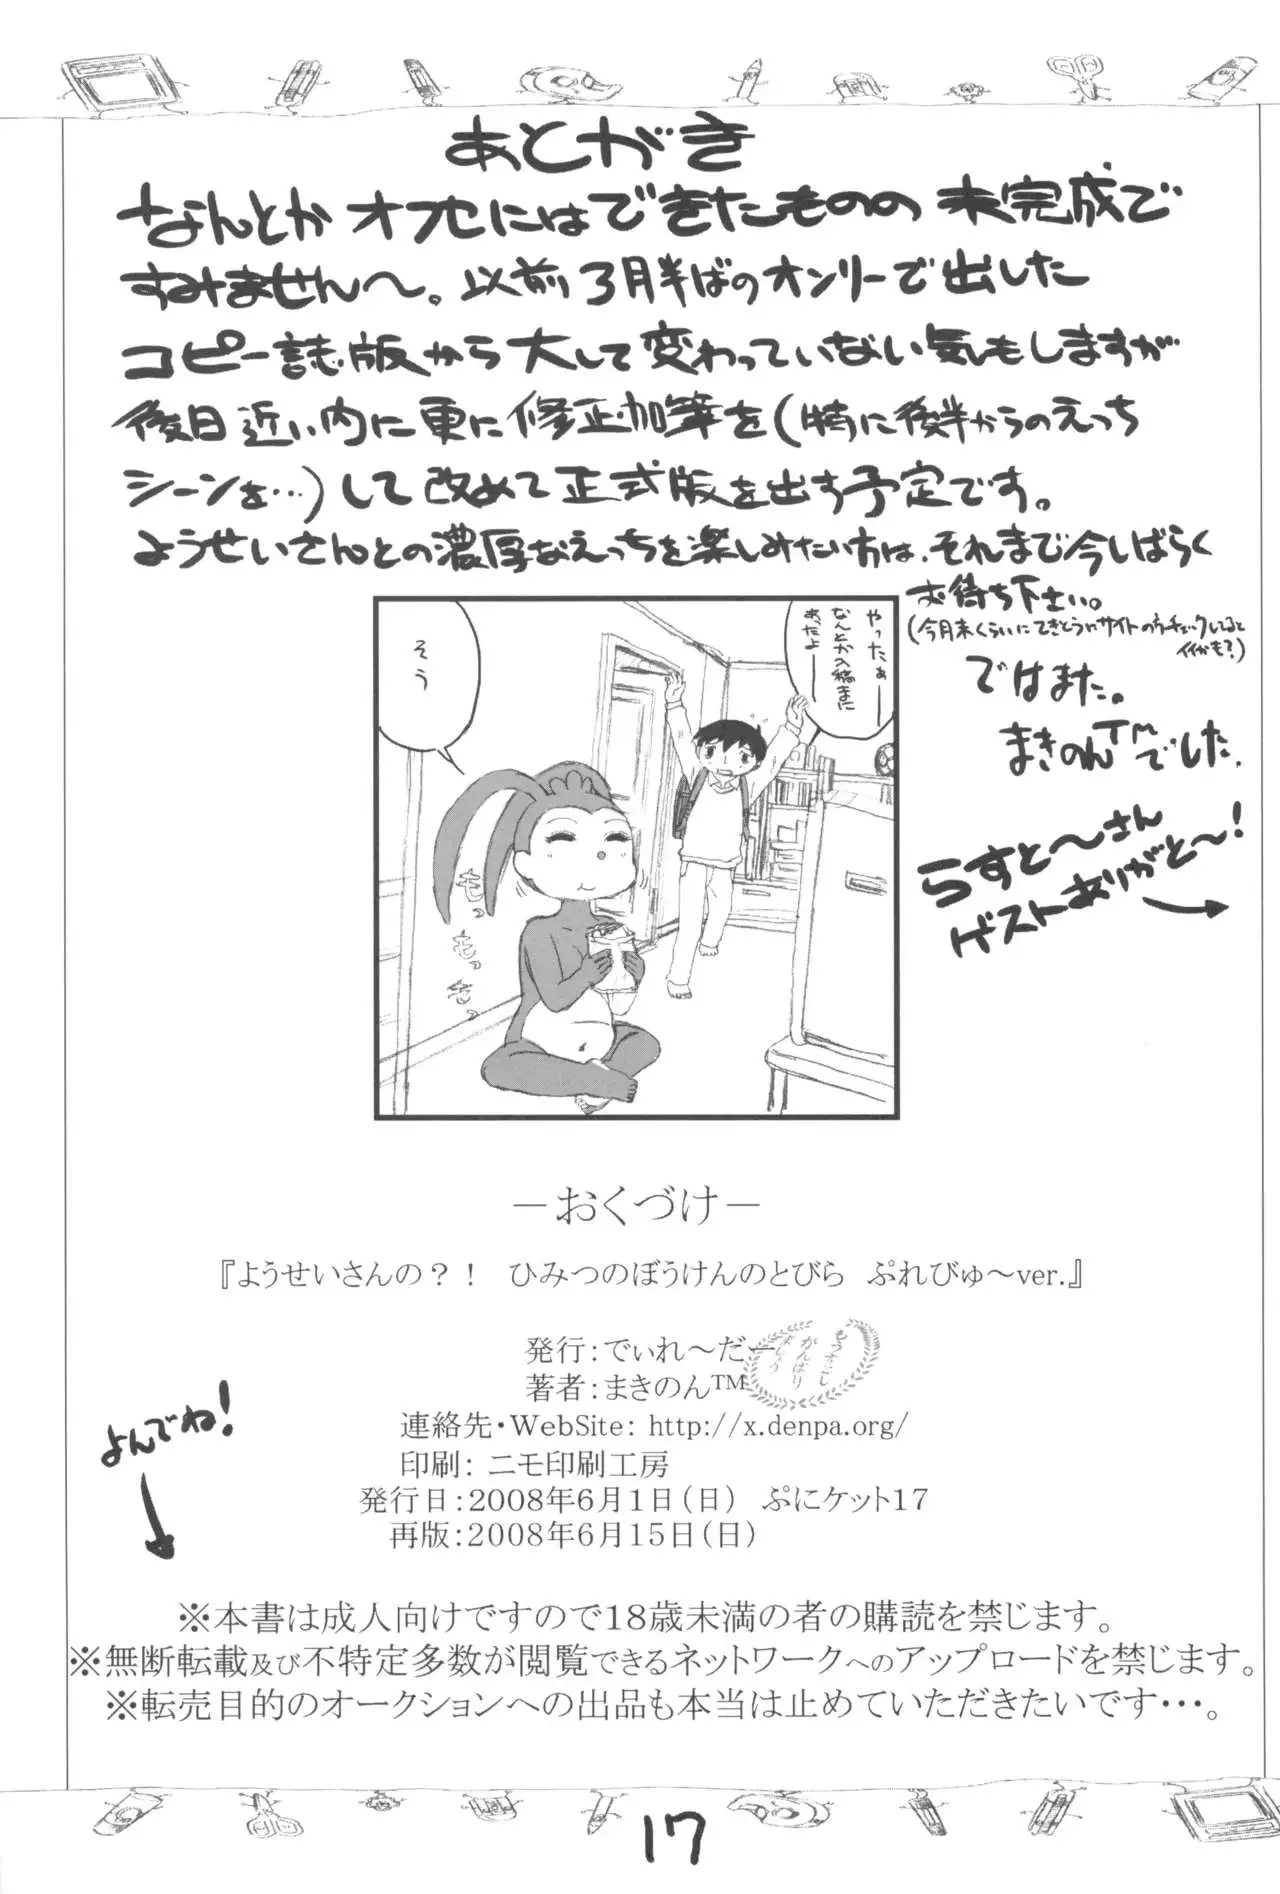 あとがき
なんとか オフセにはできたものの 未完成で
すみません〜。以前3月半ばのオンリーで出した
コピー誌版から大して変わっていない気もしますが
後日近い内に更に修正加筆を(特に後半からのえっち
シーンを…)して改めて正式版を出す予定です。
ようせいさんとの濃厚なえっちを楽しみたい方は、それまで今しばらく
お待ち下さい。
(今月末くらいにてきとうにサイトのぞーチェックしてると
イイかも?)
ではまた。
まきのん™でした.
らすと〜さん
ゲストありがと〜!
やったぁー
なんとか入稿まに
あったよー
そう
もっ
もっ
もっ
―おくづけ―
『ようせいさんの？！　ひみつのぼうけんのとびら　ぷれびゅ〜ver.』
発行：でぃれ〜だー
著者：まきのん™
連絡先・WebSite: http://x.denpa.org/
印刷： ニモ印刷工房
発行日：2008年6月1日（日） ぷにケット17
再版：2008年6月15日（日）
よんでね!
※本書は成人向けですので18歳未満の者の購読を禁じます。
※無断転載及び不特定多数が閲覧できるネットワークへのアップロードを禁じます。
※転売目的のオークションへの出品も本当は止めていただきたいです・・・。
17